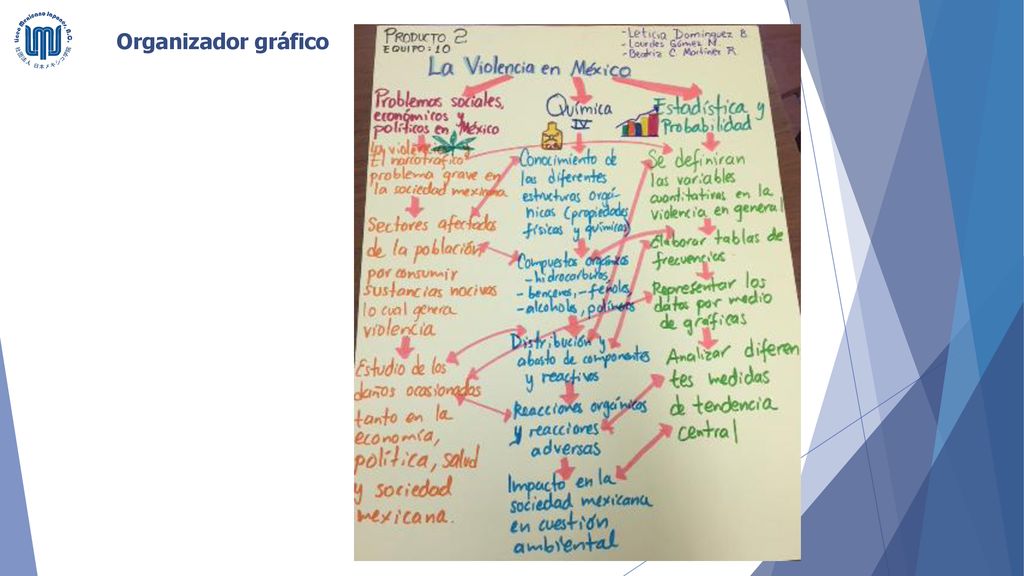 Liceo Mexicano Japonés, A.C.
社団法人 日本メキシコ学院
Organizador gráfico
PRODUCTO 2
EQUIPO: 10
- Leticia Domínguez B.
- Lourdes Gómez N.
- Beatriz C. Martínez R.
La Violencia en México
Problemas sociales,
económicos y
políticos en México
la violencia y
El narcotráfico
problema grave en
la sociedad mexicana
Sectores afectados
de la población
por consumir
sustancias nocivas
lo cual genera
violencia
Estudio de los
daños ocasionados
tanto en la
economía,
política, salud
y sociedad
mexicana.
Química
IV
Conocimiento de
las diferentes
estructuras orgá-
nicas (propiedades
físicas y químicas)
Compuestos orgánicos
- hidrocarburos,
- bencenos, - fenoles,
- alcoholes, polímeros
Distribución y
abasto de componentes
y reactivos
Reacciones orgánicas
y reacciones
adversas
Impacto en la
sociedad mexicana
en cuestión
ambiental
Estadística y
Probabilidad
Se definiran
las variables
cuantitativas en la
violencia en general
Elaborar tablas de
frecuencias
Representar los
datos por medio
de gráficas
Analizar diferen
tes medidas
de tendencia
central